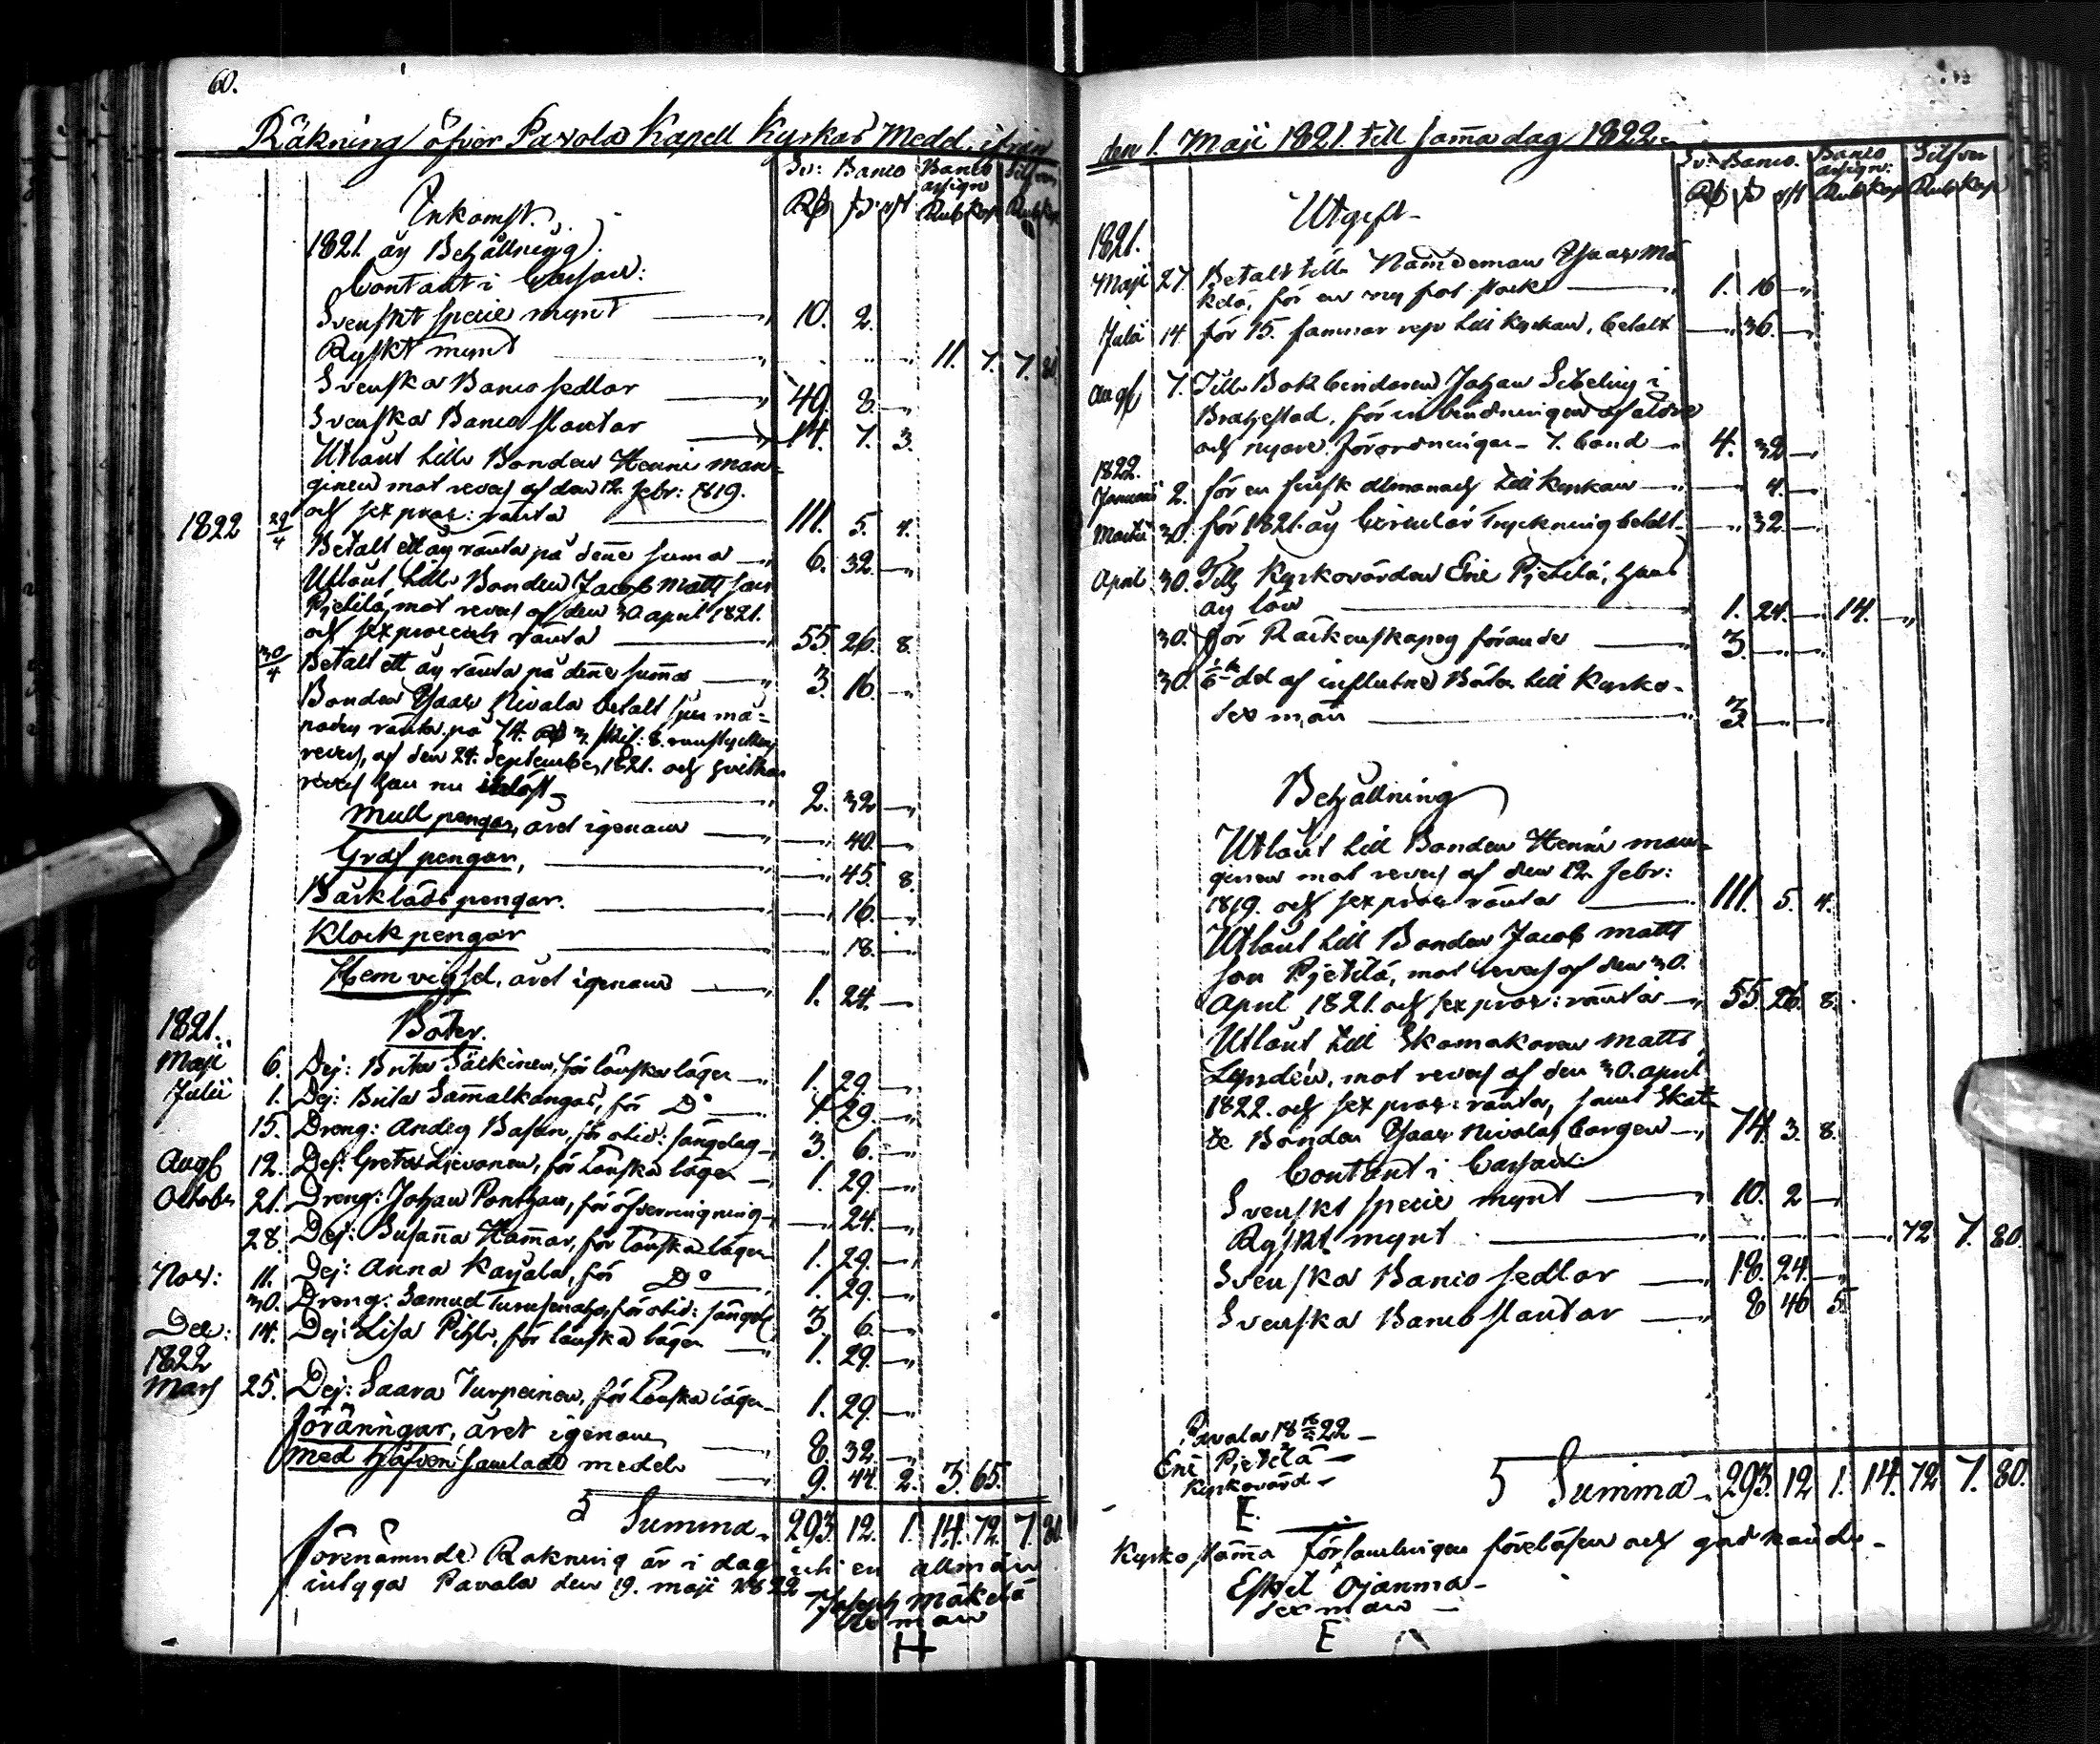 60.
Räkning öfver Pavola Kapell Kyrkas Medel, ifrån
Sv: Banco Banco assign Silfver
Rd ß rst Rub Kop Rub Kop
Inkomst.
1821 års Behållning.
Contant i Cassan:
Svenskt specie mynt 10. 2.
Ryskt mynt 11. 7. 7. 80
Svenska Banco sedlar 49. 8. „
Svenska Banco slantar 14. 7. 3.
Utlånt till Bonden Henric Man-
ginen mot revers af den 12. Febr: 1819.
och sex proc: ränta 111. 5. 4.
1822 29/4 Betalt ett års ränta på denne suma 6. 32. „
Utlånt till Bonden Jacob Matts son
Pjetilä, mot revers af den 30 april 1821.
och sex procents ränta 55. 26. 8.
30/4 Betalt ett års ränta på denne suma 3. 16. „
Bonden Isaac Nivala betalt sju må-
naders ränta på 74. Rd 3. skil: 8. runstyckens
revers, af den 24. September 1821. och hvilken
revers han nu inlöst 2. 32 „
Mull pengar, året igenom 40. „
Graf pengar, 45. 8.
Bårkläds pengar. 16. „
Klock pengar 18. „
Hem vigsel, året igenom 1. 24. „
1821. Böter.
Maji 6. Dej: Brita Säikinen, för lönska läger 1. 29. „
Julii 1. Dej: Brita Sammalkangas, för Do 1. 29. „
15. Dreng: Anders Basan, för otid: sängelag 3. 6. „
Augs 12. Dej: Greta Ljevonen, för Lönska läger 1. 29. „
October 21. Dreng: Johan Pontzan, för öfverringning 24. „
28. Dej: Susanna Hammar, för lönska läger 1. 29. „
Nov: 11. Dej: Anna Kajala, för Do 1. 29. „
30. Dreng: Samuel för otid: sängel 3. 6. „
Dec: 14. Dej: Lisa Pihl, för lönska läger 1. 29. „
1822
Mars 25. Dej: Saara Turpeinen, för Lönska läger 1. 29. „
Föräningar, året igenom 8. 32. „
Med Håfven samlade medel 9. 44. 2. 3. 65.
Summa 293. 12. 1. 14. 72. 7. 80.
Förenämnde Räkning är i dag uti en allmän
intygar Pavola den 19. Maji 1822
Joseph Mäkelä
Sexman
H
den 1. Maji 1821. till samma dag 1822.
Sv: Banco. Banco assign: Silfver
Rd ß rst Rub Kop Rub Kop
Utgift
1821.
Maji 27. Betalt till Nämdeman Isaac Mä
kelä, för en ny fot stock 1. 16 „
Julii 14. för 15. famnar rep till Kyrkan, betalt 36. „
Augs 7. Till Bokbindaren Johan Sibeling i
Brahestad, för inbindningen af äldre
och nyare Förordningar 7. band 4. 32 „
1822.
Januarii 2. för en finsk Almanach till Kyrkan 4. „
Martii 30. för 1821 års Circulär Tryckning betalt 32. „
April 30. Till Kyrkovärden Eric Pjetilä, hans
års lön 1. 24. „ 14. „
30. för Räkenskapens förande 3. „
30. 1/6 del af influtne Böter till Kyrko-
sexmän 3 „
Behållning
Utlånt till Bonden Henric Man-
ginen mot revers af den 12. Febr:
1819. och sex proc ränta 111. 5. 4.
Utlånt till Bonden Jacob Matts
son Pjetilä, mot revers af den 30.
April 1821. och sex proc: ränta 55. 26. 8.
Utlånt till Skomakaren Matts
Lyndén, mot revers af den 30. april
1822. och sex proc: ränta, samt
Bonden Isaac Nivalas borgen 74. 3. 8.
Contant i Cassan:
Svenskt specie mynt 10. 2 „
Ryskt mynt 72. 7. 80.
Svenska Banco sedlar 18. 24. „
Svenska Banco slantar 8 46 5.
Pavola 18 22
Eric Pjetilä
Kyrkovärd
E.
Summa 293. 12 1. 14. 72 7. 80.
Kyrkostämma församlingen föreläsen och godkänd.
Eskel Ojanma
Sexman
E